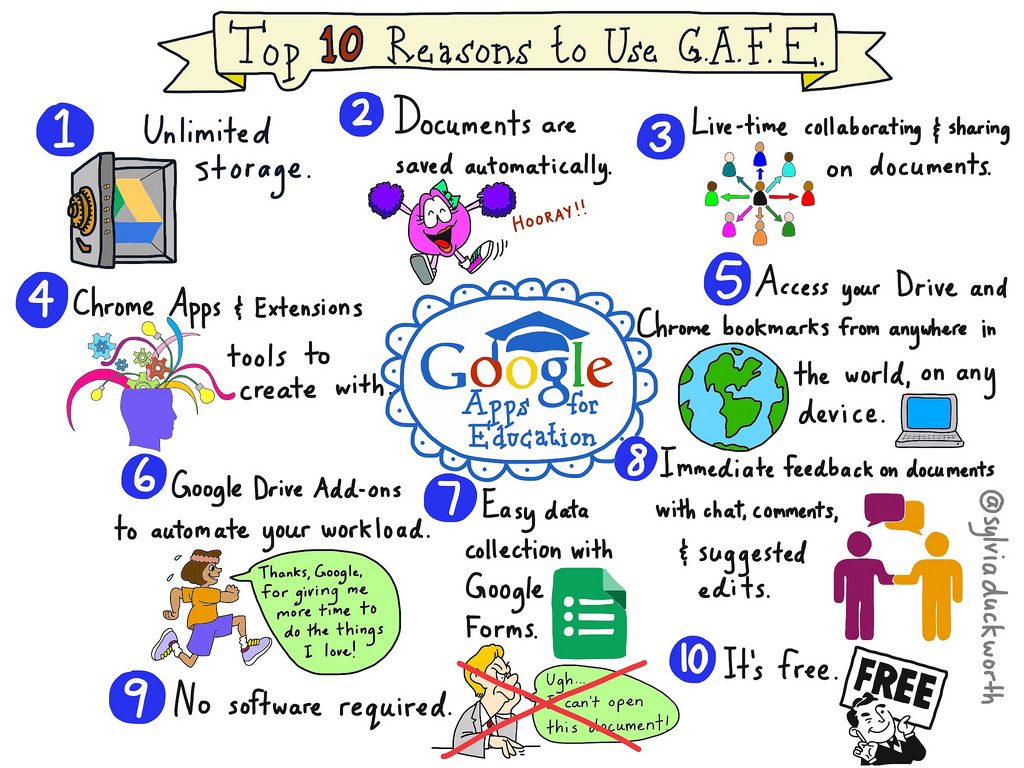 Top 10 Reasons to Use G.A.F.E.
1 Unlimited
storage.
2 Documents are
saved automatically.
HOORAY!!
3 Live-time collaborating & sharing
on documents.
4 Chrome Apps & Extensions
tools to
create with.
5 Access your Drive and
Chrome bookmarks from anywhere in
the world, on any
device.
Google
Apps for
Education
6 Google Drive Add-ons
to automate your workload.
Thanks, Google,
for giving me
more time to
do the things
I love!
7 Easy data
collection with
Google
Forms.
8 Immediate feedback on documents
with chat, comments,
& suggested
edits.
9 No software required.
Ugh...
I can't open
this document!
10 It's free.
FREE
@sylviaduckworth